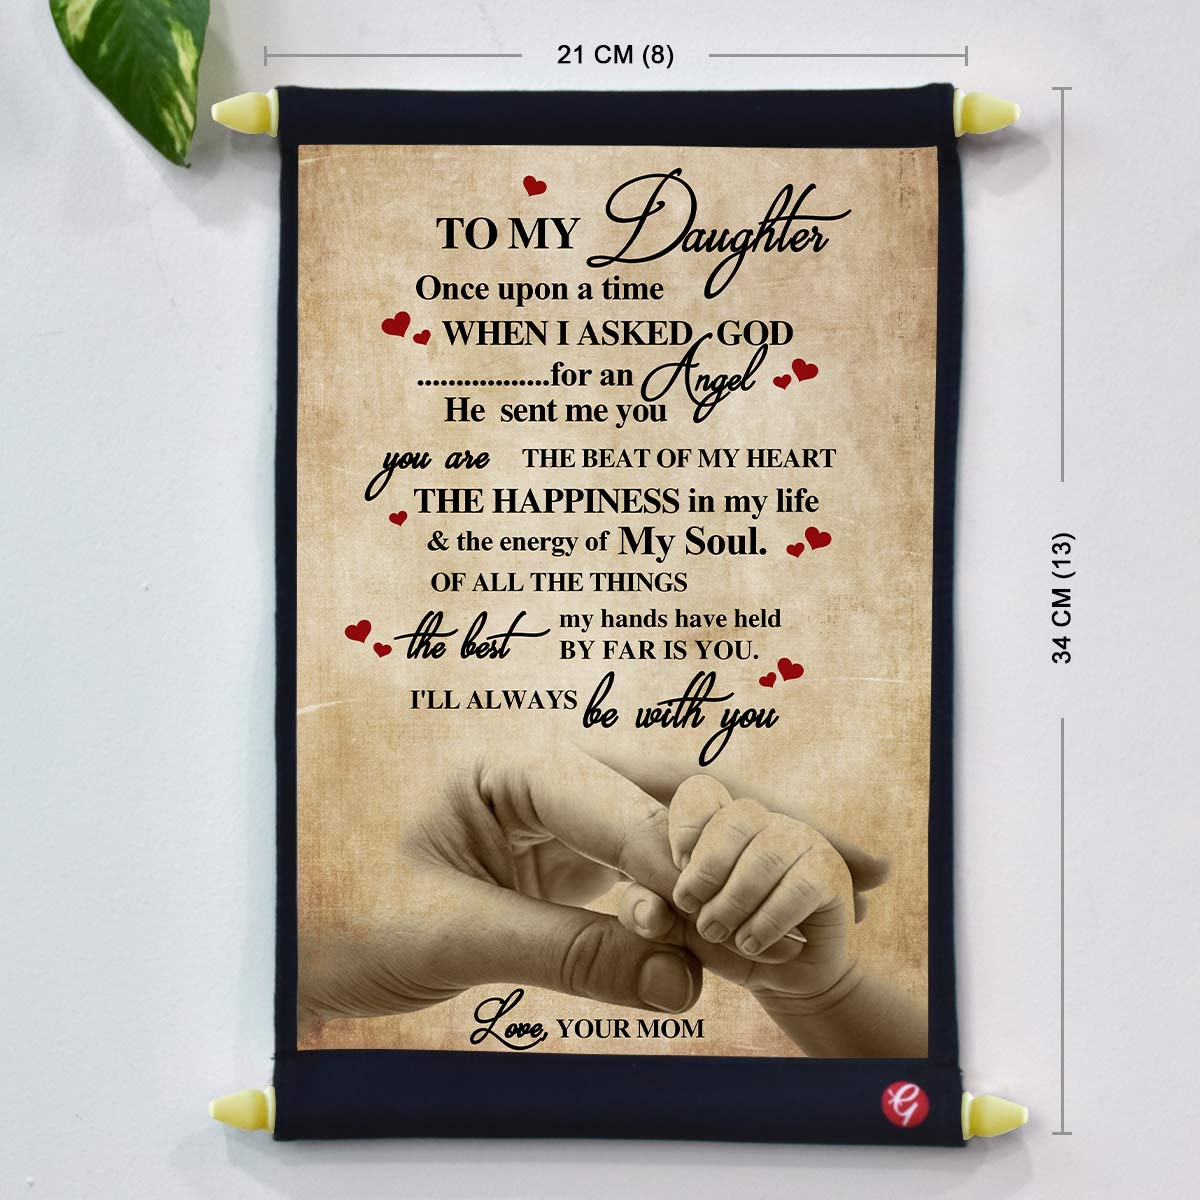 21 CM (8)
TO MY Daughter
Once upon a time
WHEN I ASKED GOD
.................for an Angel
He sent me you
you are THE BEAT OF MY HEART
THE HAPPINESS in my life
& the energy of My Soul.
OF ALL THE THINGS
the best my hands have held
BY FAR IS YOU.
I'LL ALWAYS be with you
Love, YOUR MOM
34 CM (13)